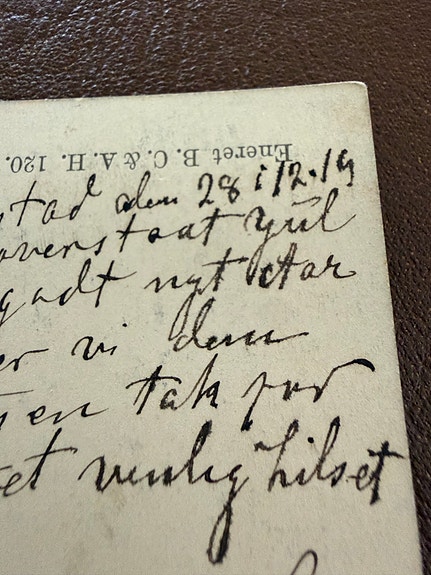 Eneret B. C. & A. H. 120.
stad den 28 i/12.19
overstaat yül
godt nyt Aar
er vi dem
en tak for
et venlig hilset